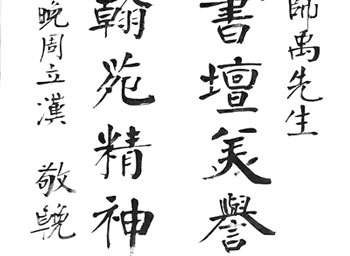 師禹先生
書壇美譽
翰苑精神
晚周立漢 敬輓